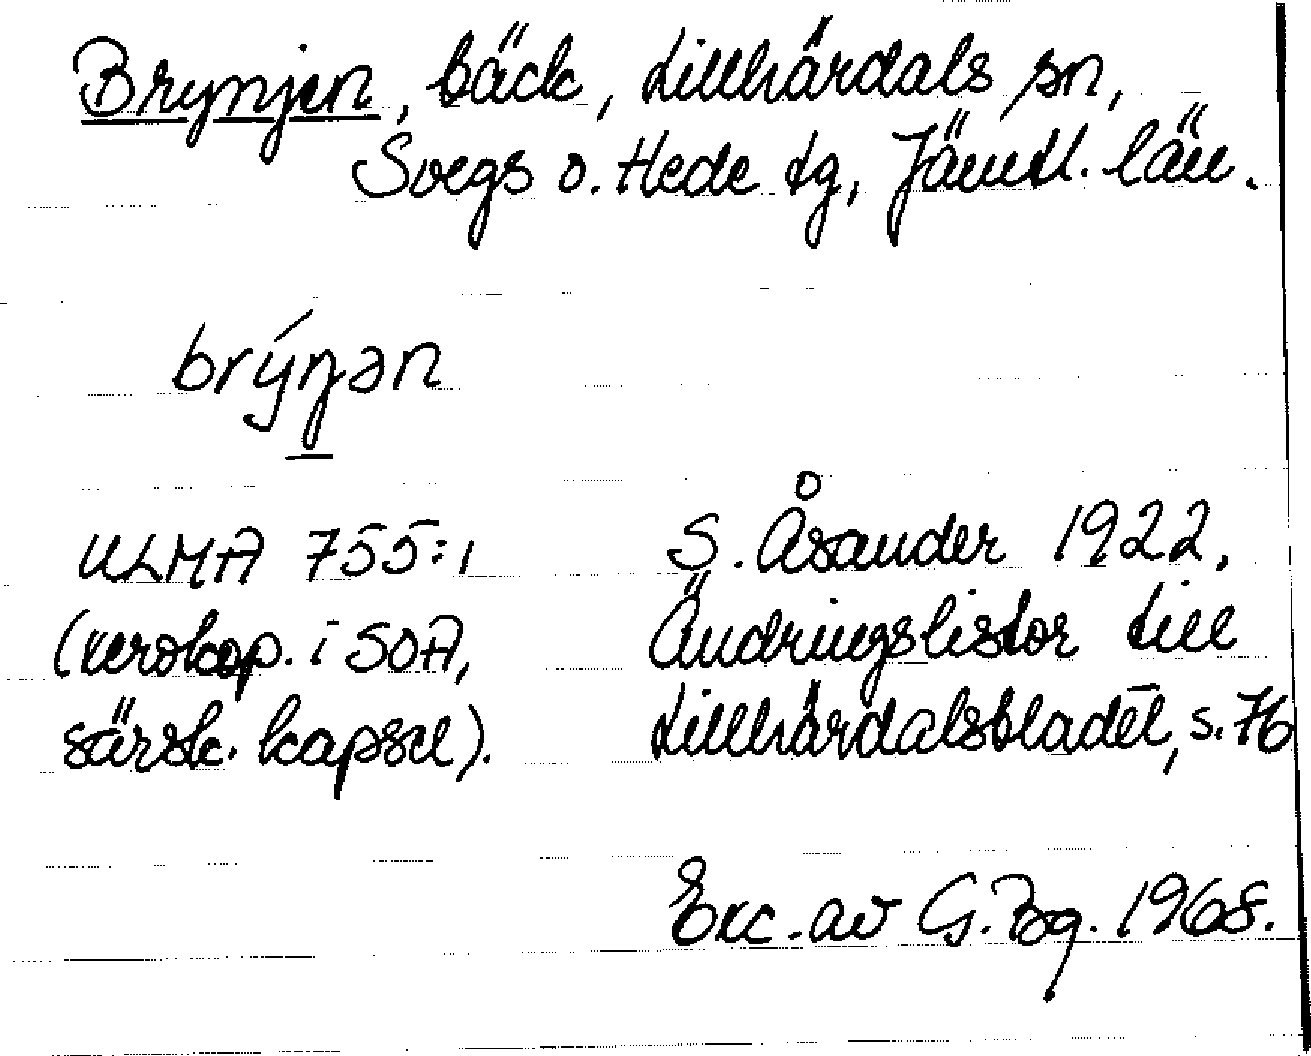 Brynjen, bäck, Lillhärdals sn,
Svegs o. Hede tg, Jämtl. län.
brýŋən
ULMA 755:1
(xerokop. i SOA,
särsk. kapsel).
S. Åsander 1922,
Ändringslistor till
Lillhärdalsbladet, s. 76
Exc. av G. Bg. 1968.